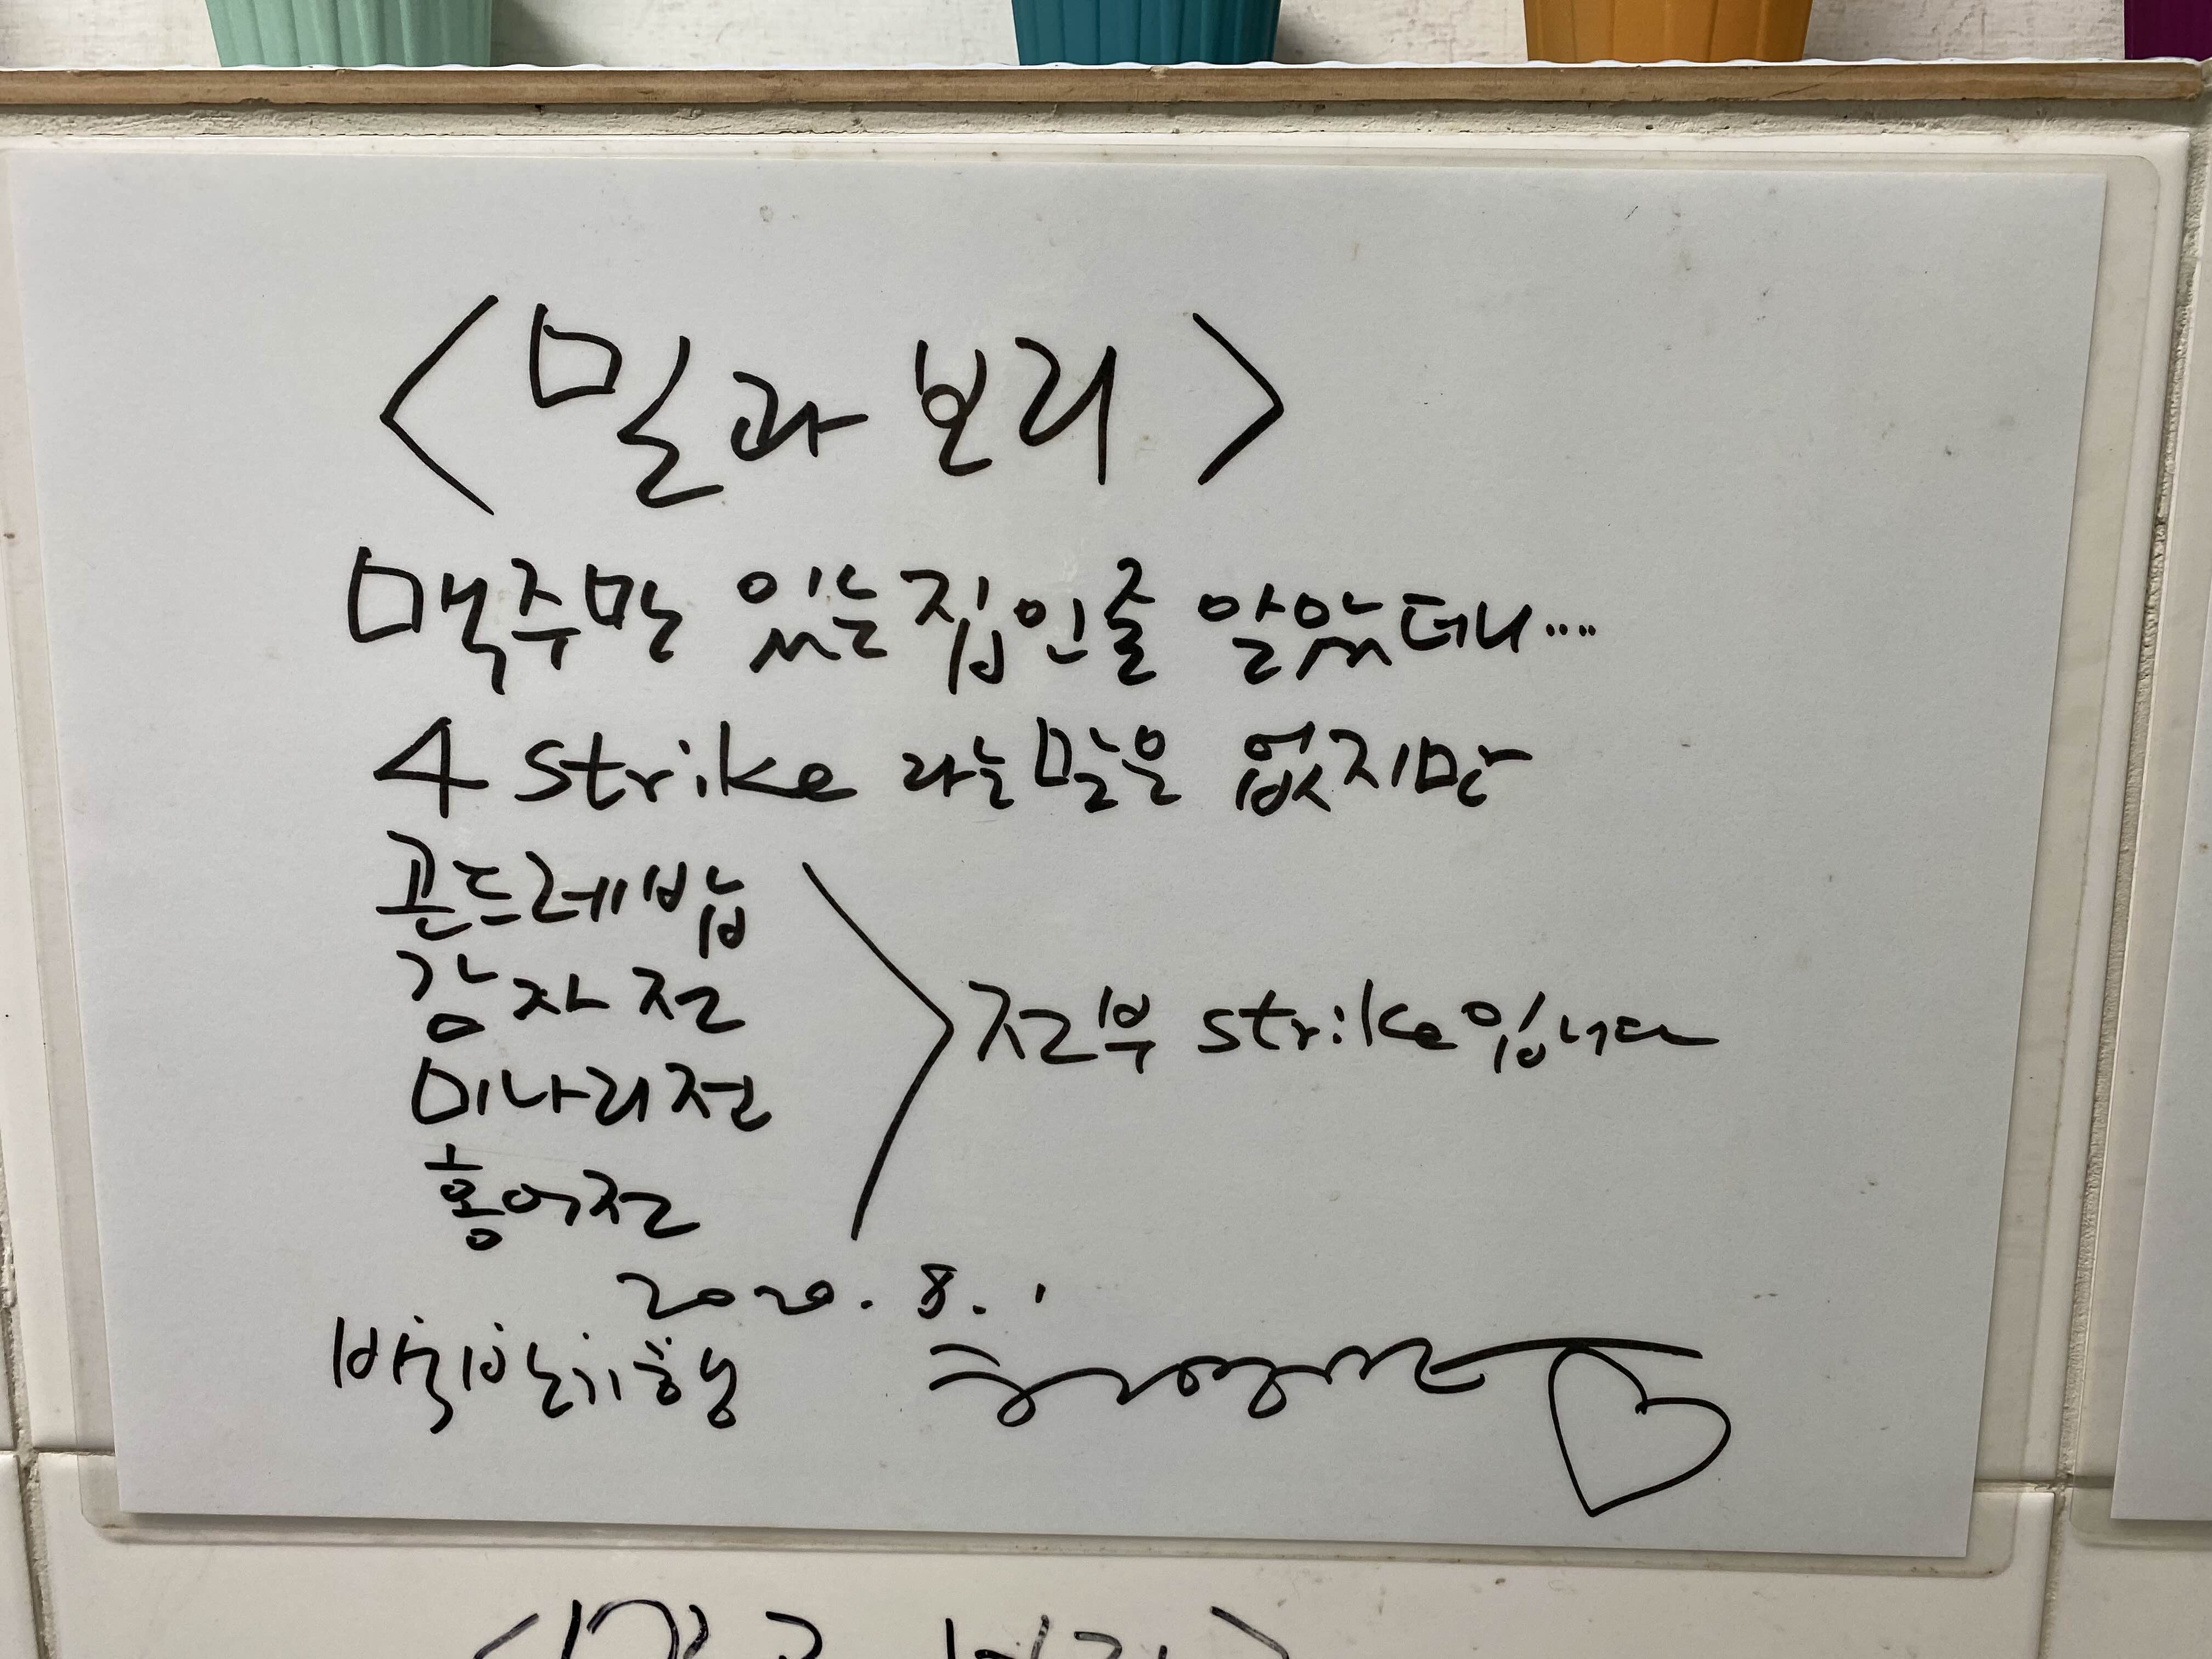 <밀과 보리>
맥주만 있는 집인줄 알았더니....
4 strike 라는 말은 없지만
곤드레밥
감자전
미나리전
홍어전
전부 strike입니다
2020. 8.
백반기행